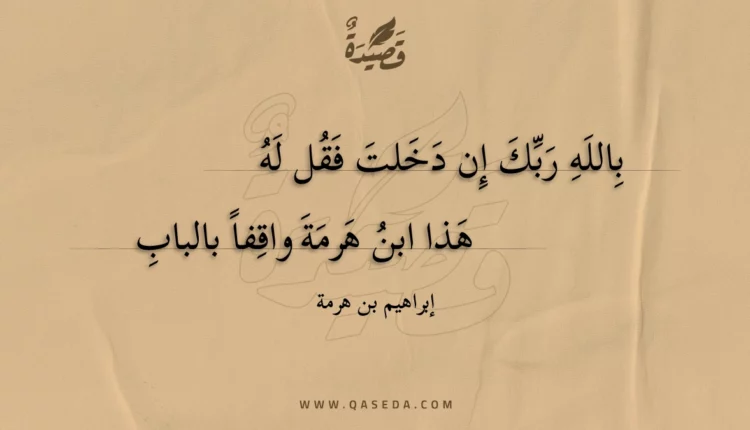 قَصِيْدَةٌ
بِاللَهِ رَبِّكَ إِن دَخَلتَ فَقُل لَهُ
هَذا ابنُ هَرمَةَ واقِفاً بالبابِ
إبراهيم بن هرمة
WWW.QASEDA.COM